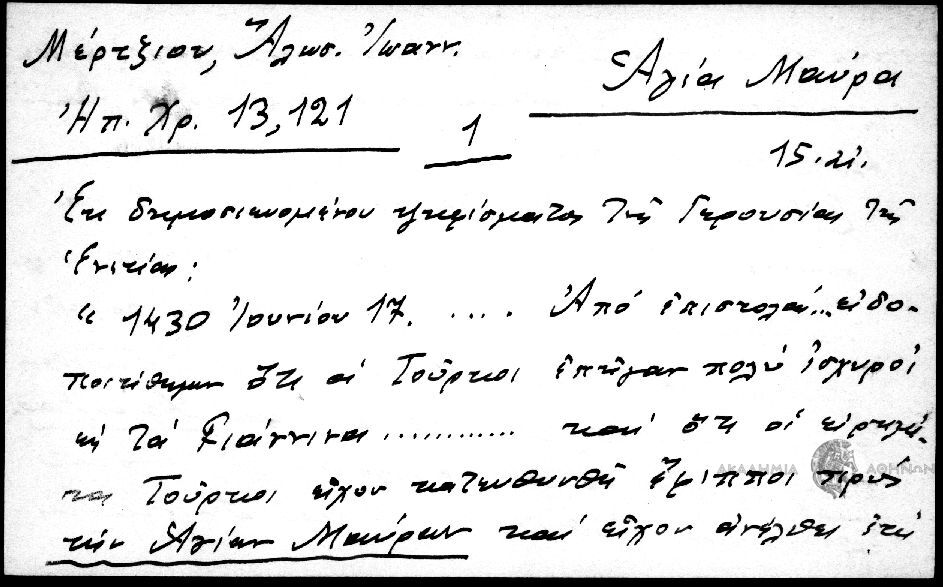 Μέρτζιου, Ἅλωσ. Ἰωανν.
Ἁγία Μαύρα
Ἠπ. Χρ. 13,121
1
15. αἰ.
Ἐκ δημοσιευομένου ψηφίσματος τῆς Γερουσίας τῆς
Ἑνετίας:
" 1430 Ἰουνίου 17. .... Ἀπό ἐπιστολάς... εἰδο-
ποιήθημεν ὅτι οἱ Τοῦρκοι ἐπῆγαν πολύ ἰσχυροί
εἰς τά Γιάννινα ............ καί ὅτι οἱ εἰρημέ-
νοι Τοῦρκοι εἶχον κατευθυνθῆ ἔφιπποι πρός
τήν Ἁγίαν Μαύραν καί εἶχον ἀνέλθει
ΑΚΑΔΗΜΙΑ ΑΘΗΝΩΝ